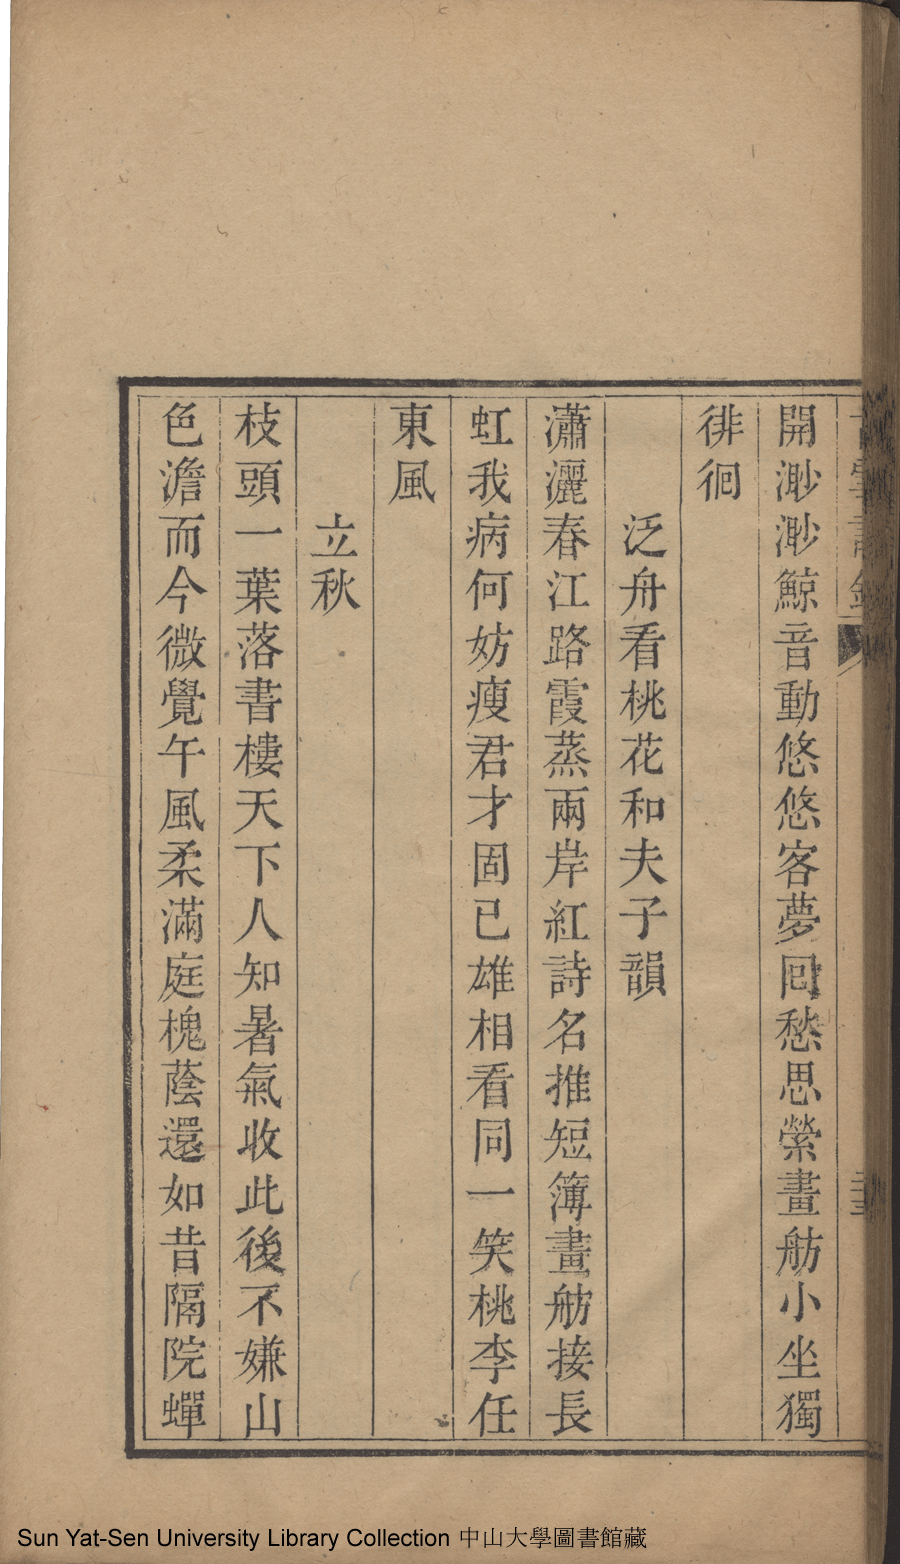 開渺渺鯨音動悠悠客夢回愁思縈畫舫小坐獨
徘徊
泛舟看桃花和夫子韻
瀟灑春江路霞蒸兩岸紅詩名推短簿畫舫接長
虹我病何妨瘦君才固已雄相看同一笑桃李任
東風
立秋
枝頭一葉落書樓天下人知暑氣收此後不嫌山
色澹而今微覺午風柔滿庭槐蔭還如昔隔院蟬
Sun Yat-Sen University Library Collection 中山大學圖書館藏